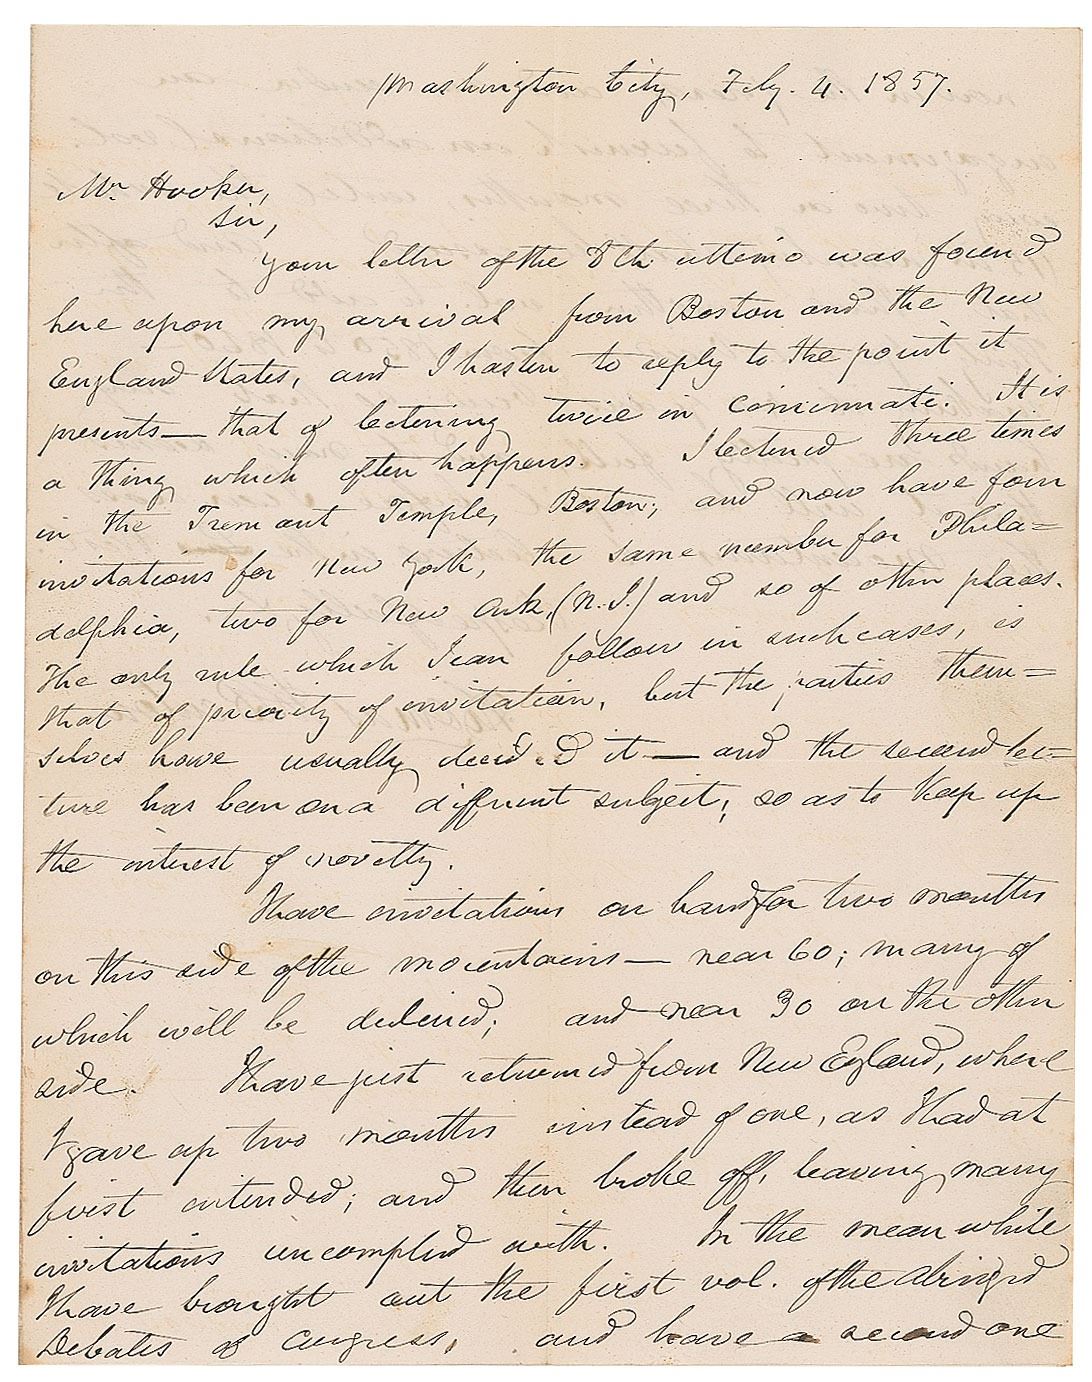 Washington City, Feby. 4. 1857.
Mr. Hooker,
Sir,
Your letter of the 8th. ultimo was found
here upon my arrival from Boston and the New
England States, and I hasten to reply to the point it
presents — that of lecturing twice in Cincinnati. It is
a thing which often happens. I lectured three times
in the Tremont Temple, Boston; and now have four
invitations for New York, the same number for Phila=
delphia, two for New Ark, (N.J.) and so of other places.
The only rule which I can follow in such cases, is
that of priority of invitation, but the parties them=
selves have usually decided it — and the second lec=
ture has been on a different subject; so as to keep up
the interest of novelty.
I have invitations on hand for two months
on this side of the mountains — near 60; many of
which will be declined; and near 30 on the other
side. I have just returned from New England, where
I gave up two months instead of one, as I had at
first intended; and then broke off, leaving many
invitations uncomplied with. In the mean while
I have brought out the first vol. of the abridged
Debates of Congress, and have a second one